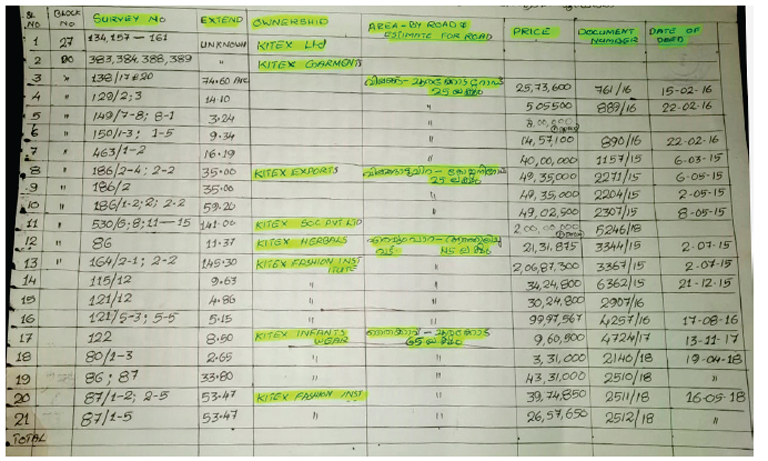 SL NO BLOCK NO SURVEY NO EXTEND OWNERSHIP AREA-BY ROAD & ESTIMATE FOR ROAD PRICE DOCUMENT NUMBER DATE OF DEED
1 27 134,157-161 UNKNOWN KITEX Ltd
2 20 383,384,388,389 " KITEX GARMENTS
3 " 138/17&20 74.60 Arc 25,73,600 761/16 15-02-16
4 " 129/2;3 14.10 " 5,05,500 889/16 22-02-16
5 " 149/7-8; 8-1 3.24 "
6 " 150/1-3; 1-5 9.34 " 14,57,100 890/16 22-02-16
7 " 463/1-2 16.19 " 40,00,000 1157/15 6-03-15
8 " 186/2-4; 2-2 35.00 KITEX EXPORTS 49,35,000 2271/15 6-05-15
9 " 186/2 35.00 " 49,35,000 2204/15 2-05-15
10 " 186/1-2; 2; 2-2 59.20 " 49,02,500 2307/15 8-05-15
11 " 530/6;8;11-15 141.00 KITEX SOC PVT LTD 5246/18
12 " 86 11.37 KITEX HERBALS 21,31,875 3344/15 2-07-15
13 " 164/2-1; 2-2 145.30 KITEX FASHION INSTITUTE " 2,06,87,300 3367/15 2-07-15
14 115/12 9.63 " " 34,24,800 6362/15 21-12-15
15 121/12 4.86 " " 30,24,800 2907/16
16 121/5-3; 5-5 5.15 " " 99,97,567 4257/16 17-08-16
17 122 8.50 KITEX INFANTS WEAR 9,60,500 4724/17 13-11-17
18 80/1-3 2.65 " " 3,31,000 2140/18 19-04-18
19 86; 87 33.80 " " 43,31,000 2510/18 "
20 87/1-2; 2-5 53.47 KITEX FASHION INST " 39,74,850 2511/18 16-05-18
21 87/1-5 53.47 " " 26,57,650 2512/18 "
TOTAL